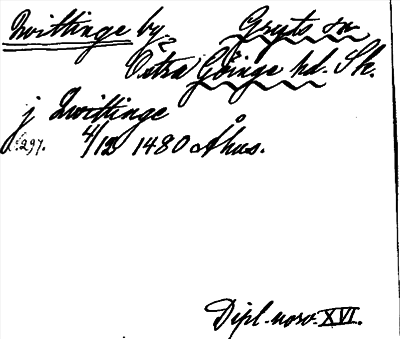 Zwittinge by, Gryts sn
Östra Göinge hd. Sk.
j Zwittinge
s. 297. 4/12 1480 Åhus.
Dipl. norv. XVI.